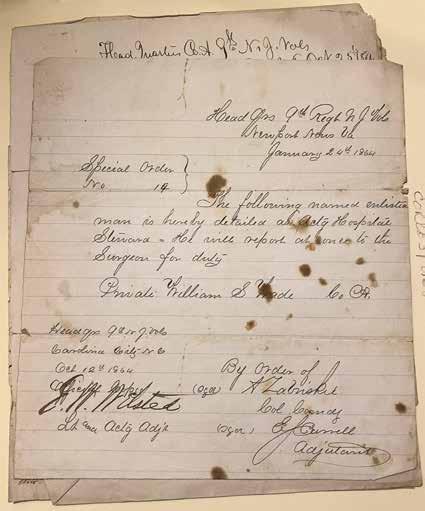 Head Quarters Co. A. 9th N. J. Vols
Oct 25th 1864
Head Qrs 9th Regt N J Vols
Newport News Va
January 24th 1864
Special Order }
No. 14
The following named enlisted
man is hereby detailed as Actg Hospital
Steward - He will report at once to the
Surgeon for duty
Private William S Wade Co A.
Head Qrs 9th N.J. Vols
Carolina City N.C
Oct 12th 1864
By Order of
(Sgd) A Zabriskie
Col Comdg
Actg Adjt
(Sgd) E J Carrell
Adjutant